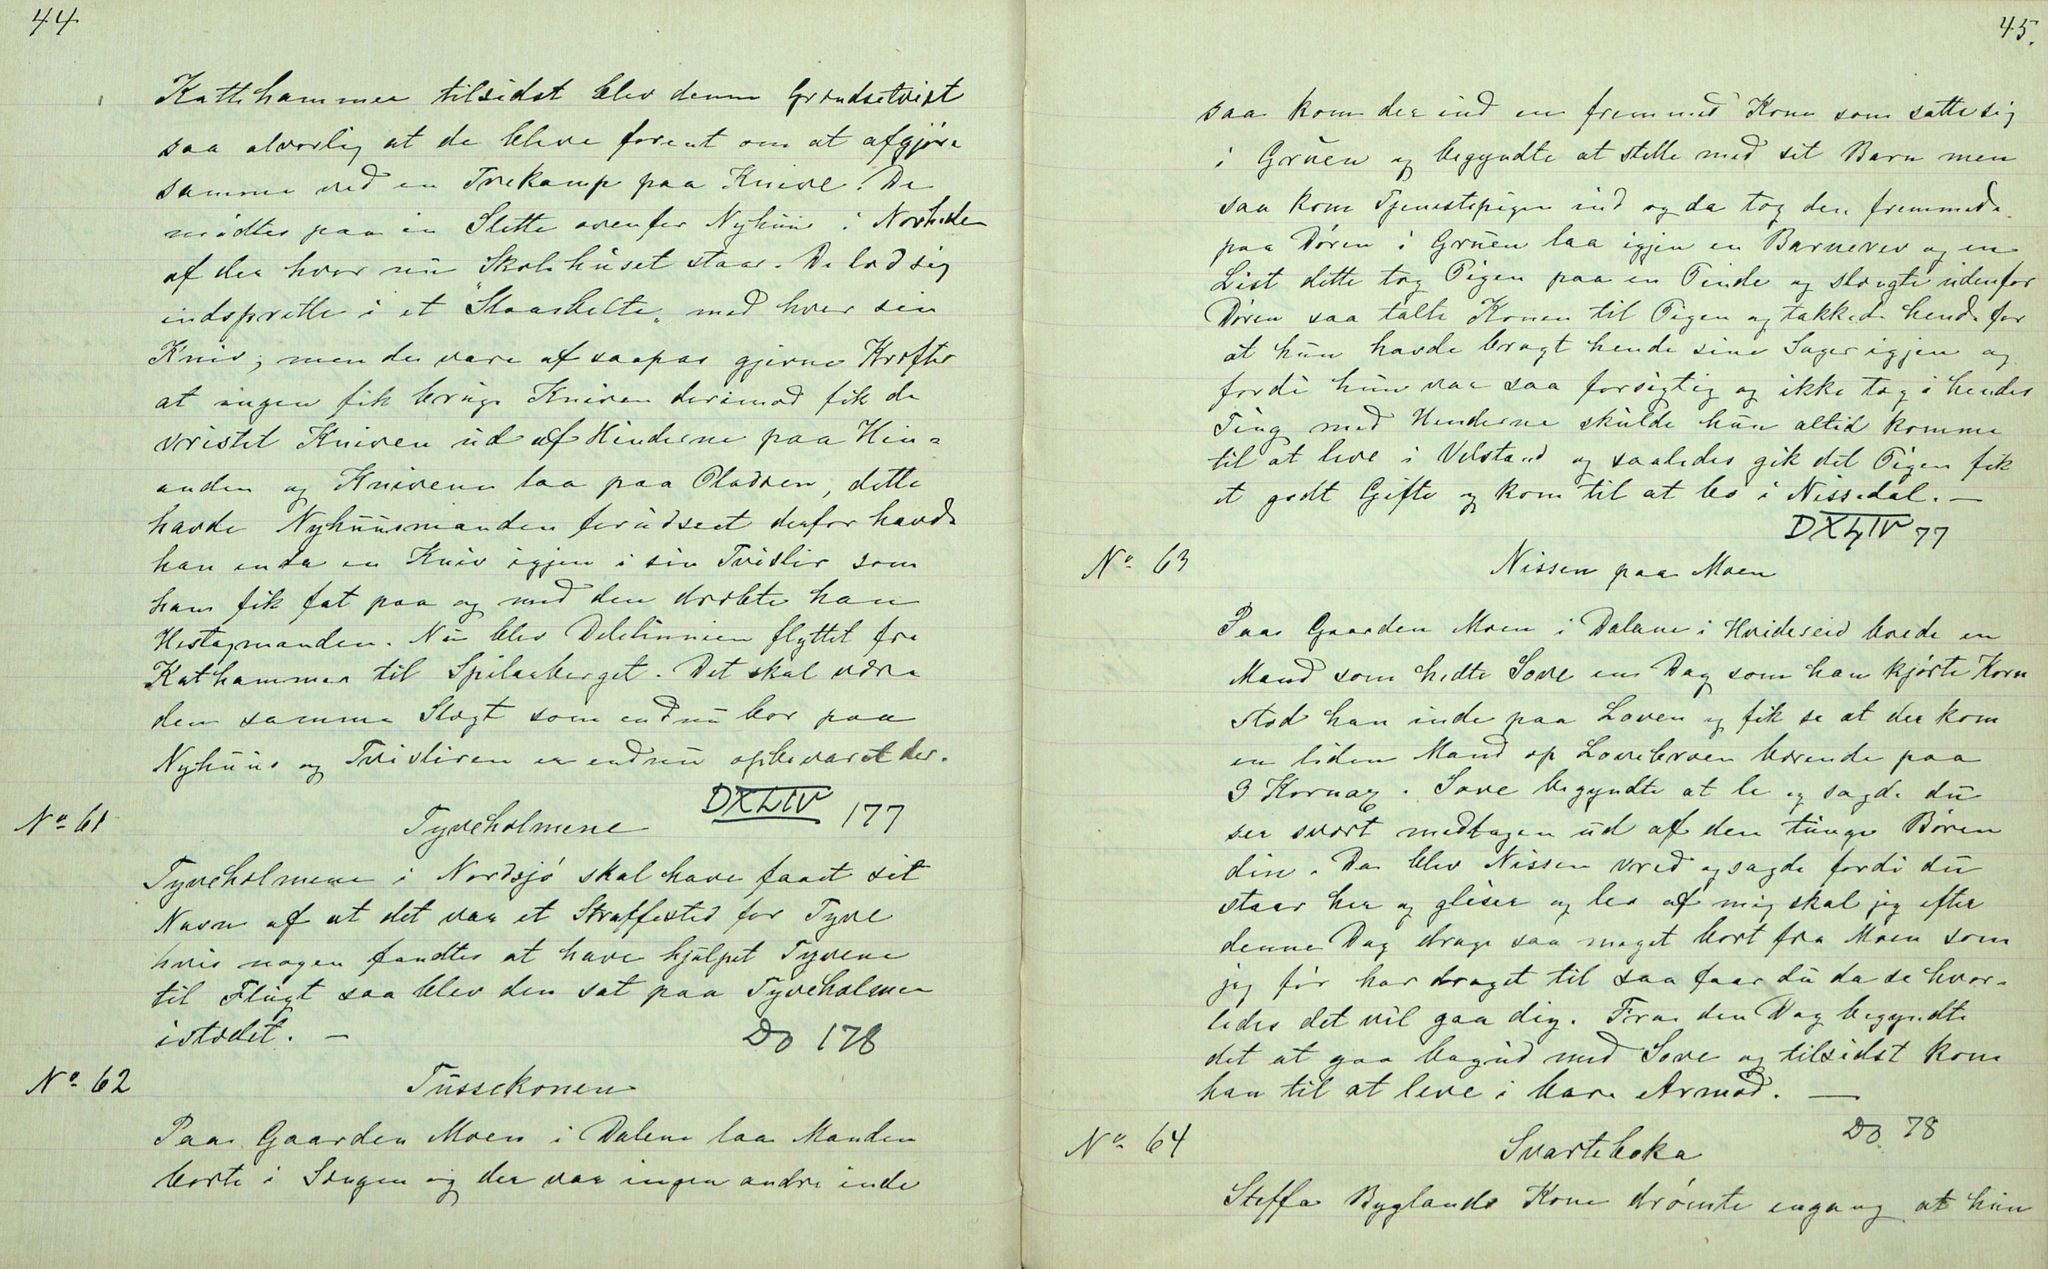 44
Kattehammer tilsidst blev denne Grændsetvist
saa alvorlig at de bleve forent om at afgjøre
samme ved en Tvekamp paa Knive. De
mødtes paa en Slette ovenfor Nyhuus i Nordsiden
af der hvor nu Skolehuset staar. De lod sig
indsprette i et "Staarbelte" med hver sin
Kniv; men de vare af saapas gjævne Kræfter
at ingen fik bruge Kniven derimod fik de
vristet Kniven ud af Hænderne paa Hin-
anden og Knivene laa paa Pladsen, dette
havde Nyhuusmanden forudseet derfor havde
han enda en Kniv igjen i sin Tvislir som
han fik fat paa og med den dræbte han
Hestagmanden. Nu blev Delelinnien flyttet fra
Kathammer til Spilaaberget. Det skal være
den samme Slægt som endnu bor paa
Nyhuus og Tvisliren er endnu opbevaret der.
DXLIV 177
No 61
Tyveholmene
Tyveholmene i Nordsjø skal have faaet sit
Navn af at det var et Straffested for Tyve
hvis nogen fandtes at have hjulpet Tyvene
til Flugt saa blev den sat paa Tyveholmen
istedet. —
Do 178
No 62
Tussekonen
Paa Gaarden Moen i Dalene laa Manden
borte i Skogen og der var ingen andre inde
45.
saa kom der ind en fremmed Kone som satte sig
i Gruen og begyndte at stelle med sit Barn men
saa kom Tjenestepigen ind og da tog den fremmede
paa Døren i Gruen laa igjen en Barnerev og en
List dette tog Pigen paa en Pinde og slengte udenfor
Døren saa talte Konen til Pigen og takkede hende for
at hun havde bragt hende sine Sager igjen og
fordi hun var saa forsigtig og ikke tog i hendes
Ting med Hænderne skulde hun altid komme
til at leve i Velstand og saaledes gik det Pigen fik
et godt Gifte og kom til at bo i Nissedal. —
DXLIV 77
No 63
Nissen paa Moen
Paa Gaarden Moen i Dalane i Hvideseid boede en
Mand som hedte Sove en Dag som han kjørte Korn
stod han inde paa Loven og fik se at der kom
en liden Mand op Lovebroen bærende paa
3 Kornax. Sove begyndte at le og sagde du
ser svært medtagen ud af den tunge Børen
din. Da blev Nissen vred og sagde fordi du
staar her og gliser og ler af mig skal jeg efter
denne Dag drage saa meget bort fra Moen som
jeg før har draget til saa faar du da se hvor-
ledes det vil gaa dig. Fra den Dag begyndte
det at gaa bagud med Sove og tilsidst kom
han til at leve i bare Armod. —
Do 78
No 64
Svarteboka
Steffa Byglands Kone drømte engang at hun